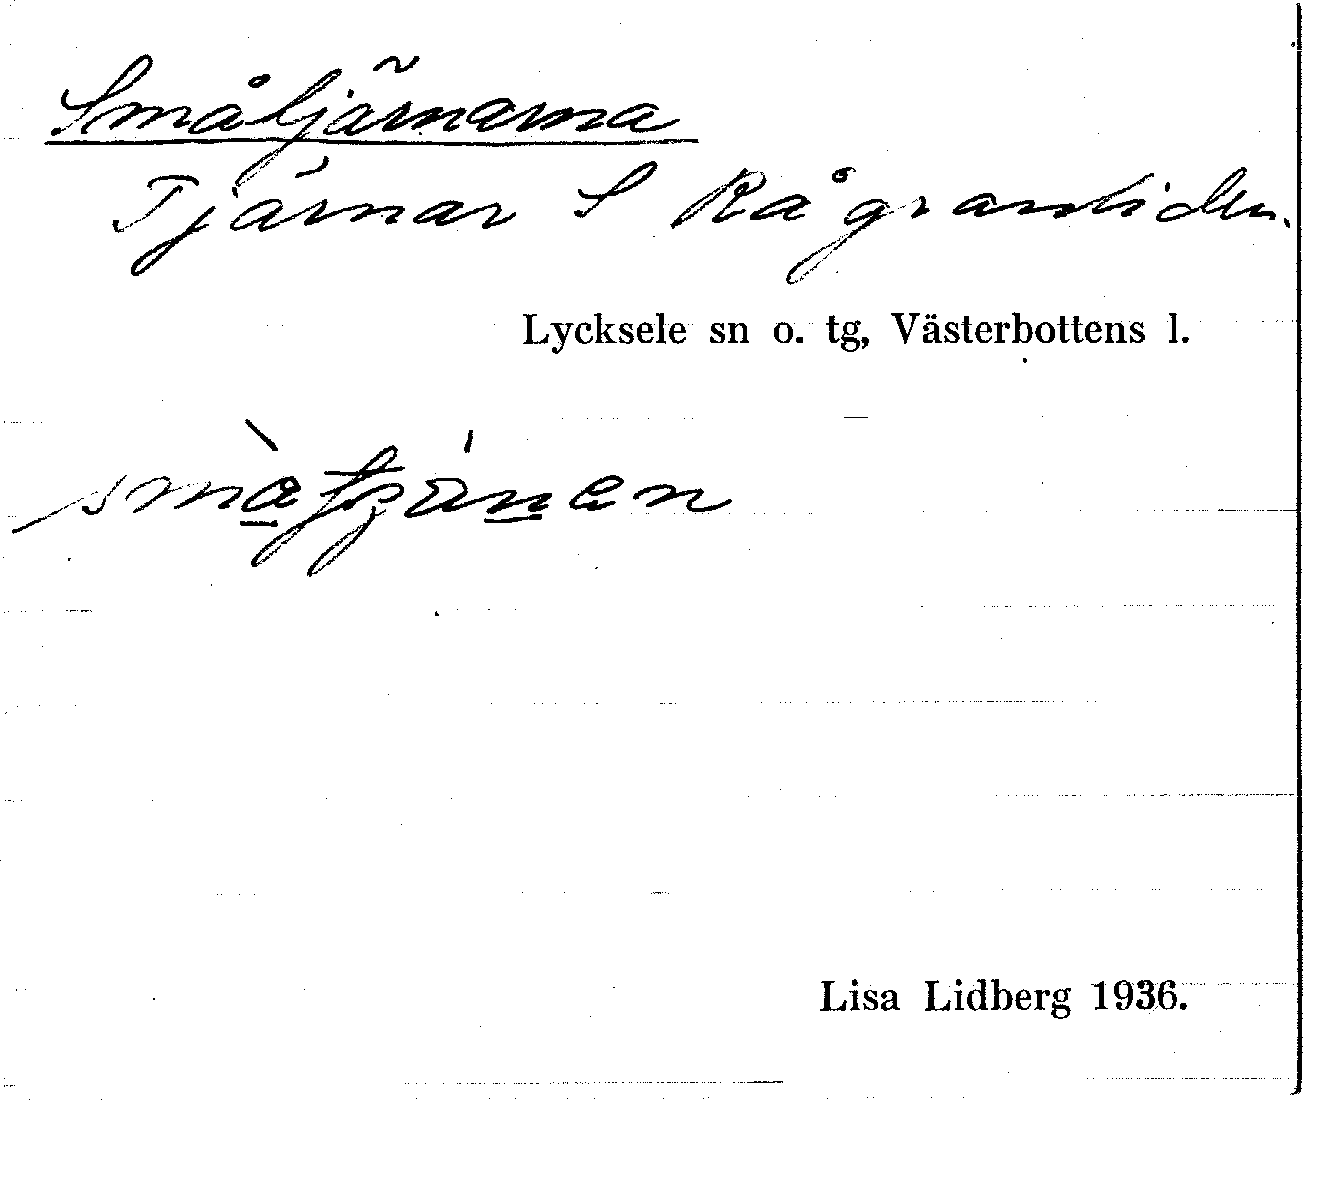 Småtjärnarna
Tjärnar S Rågranliden.
Lycksele sn o. tg, Västerbottens l.
Lisa Lidberg 1936.